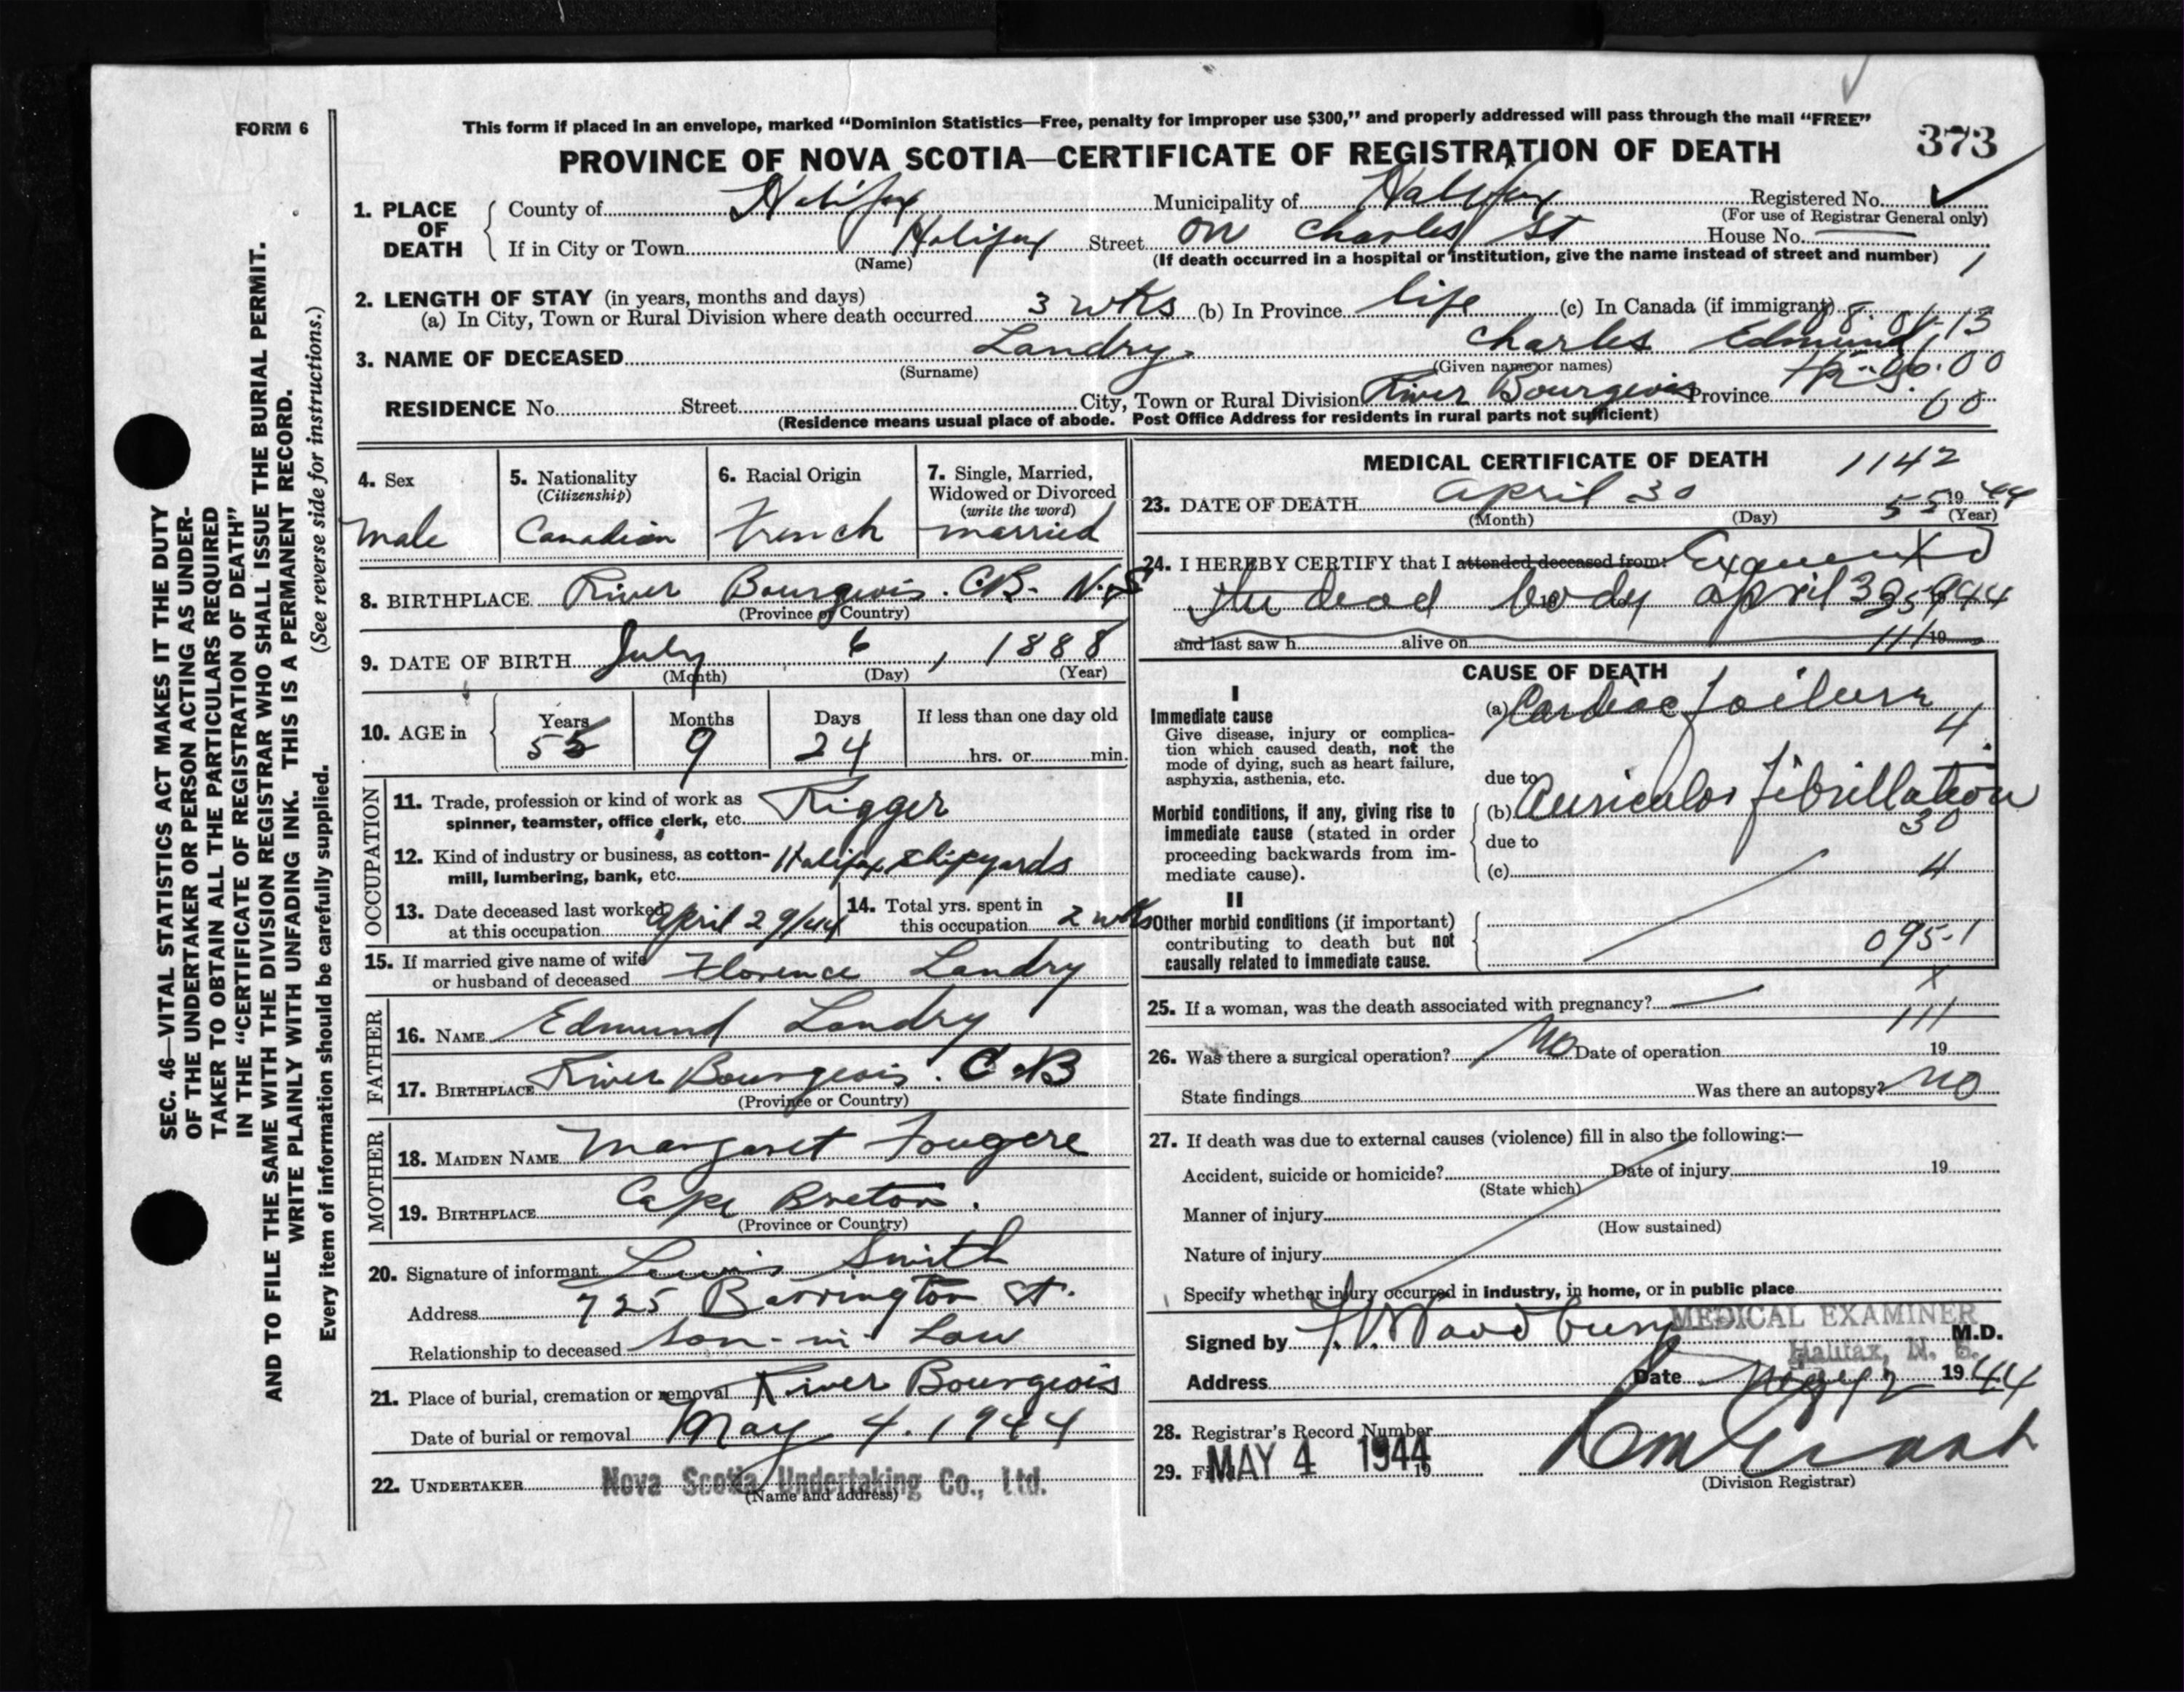 FORM 6
This form if placed in an envelope, marked “Dominion Statistics—Free, penalty for improper use $300,” and properly addressed will pass through the mail “FREE”
373
PROVINCE OF NOVA SCOTIA—CERTIFICATE OF REGISTRATION OF DEATH
1. PLACE OF DEATH
County of Halifax Municipality of Halifax Registered No.
(For use of Registrar General only)
If in City or Town Halifax Street on Charles St House No.
(Name) (If death occurred in a hospital or institution, give the name instead of street and number) 1
2. LENGTH OF STAY (in years, months and days)
(a) In City, Town or Rural Division where death occurred 3 wks (b) In Province life (c) In Canada (if immigrant)
3. NAME OF DECEASED Landry, Charles Edmund
(Surname) (Given name or names)
RESIDENCE No. Street City, Town or Rural Division River Bourgeois Province 00
(Residence means usual place of abode. Post Office Address for residents in rural parts not sufficient)
4. Sex
male
5. Nationality
(Citizenship)
Canadian
6. Racial Origin
French
7. Single, Married,
Widowed or Divorced
(write the word)
married
8. BIRTHPLACE River Bourgeois. C.B. N.S
(Province or Country)
9. DATE OF BIRTH July 6, 1888
(Month) (Day) (Year)
10. AGE in
Years Months Days If less than one day old
55 9 24 hrs. or min.
OCCUPATION
11. Trade, profession or kind of work as
spinner, teamster, office clerk, etc. Rigger
12. Kind of industry or business, as cotton-
mill, lumbering, bank, etc. Halifax Shipyards
13. Date deceased last worked
at this occupation April 29/44
14. Total yrs. spent in
this occupation 2 wks
15. If married give name of wife
or husband of deceased Florence Landry
FATHER
16. NAME Edmund Landry
17. BIRTHPLACE River Bourgeois. C.B
(Province or Country)
MOTHER
18. MAIDEN NAME Margaret Fougere
19. BIRTHPLACE Cape Breton.
(Province or Country)
20. Signature of informant Louis Smith
Address 725 Barrington St.
Relationship to deceased son-in-Law
21. Place of burial, cremation or removal River Bourgeois
Date of burial or removal May 4. 1944
22. UNDERTAKER Nova Scotia Undertaking Co., Ltd.
(Name and address)
MEDICAL CERTIFICATE OF DEATH 1142
23. DATE OF DEATH April 30 55 19 44
(Month) (Day) (Year)
24. I HEREBY CERTIFY that I attended deceased from: Examined
the dead body April 30 1944
and last saw h alive on 19
111
CAUSE OF DEATH
I
Immediate cause
Give disease, injury or complica-
tion which caused death, not the
mode of dying, such as heart failure,
asphyxia, asthenia, etc.
(a) Cardiac failure
4
due to
Morbid conditions, if any, giving rise to
immediate cause (stated in order
proceeding backwards from im-
mediate cause).
(b) Auricular fibrillation
30
due to
(c) 4
II
Other morbid conditions (if important)
contributing to death but not
causally related to immediate cause.
095-1
X
25. If a woman, was the death associated with pregnancy?
111
26. Was there a surgical operation? No Date of operation 19
State findings Was there an autopsy? NO
27. If death was due to external causes (violence) fill in also the following:—
Accident, suicide or homicide? Date of injury 19
(State which)
Manner of injury
(How sustained)
Nature of injury
Specify whether injury occurred in industry, in home, or in public place
Signed by Woodbury MEDICAL EXAMINER M.D.
Halifax, N. S.
Address Date May 2 1944
28. Registrar's Record Number
29. Filed MAY 4 1944 19
(Division Registrar)
SEC. 46—VITAL STATISTICS ACT MAKES IT THE DUTY
OF THE UNDERTAKER OR PERSON ACTING AS UNDER-
TAKER TO OBTAIN ALL THE PARTICULARS REQUIRED
IN THE “CERTIFICATE OF REGISTRATION OF DEATH”
AND TO FILE THE SAME WITH THE DIVISION REGISTRAR WHO SHALL ISSUE THE BURIAL PERMIT.
WRITE PLAINLY WITH UNFADING INK. THIS IS A PERMANENT RECORD.
Every item of information should be carefully supplied. (See reverse side for instructions.)